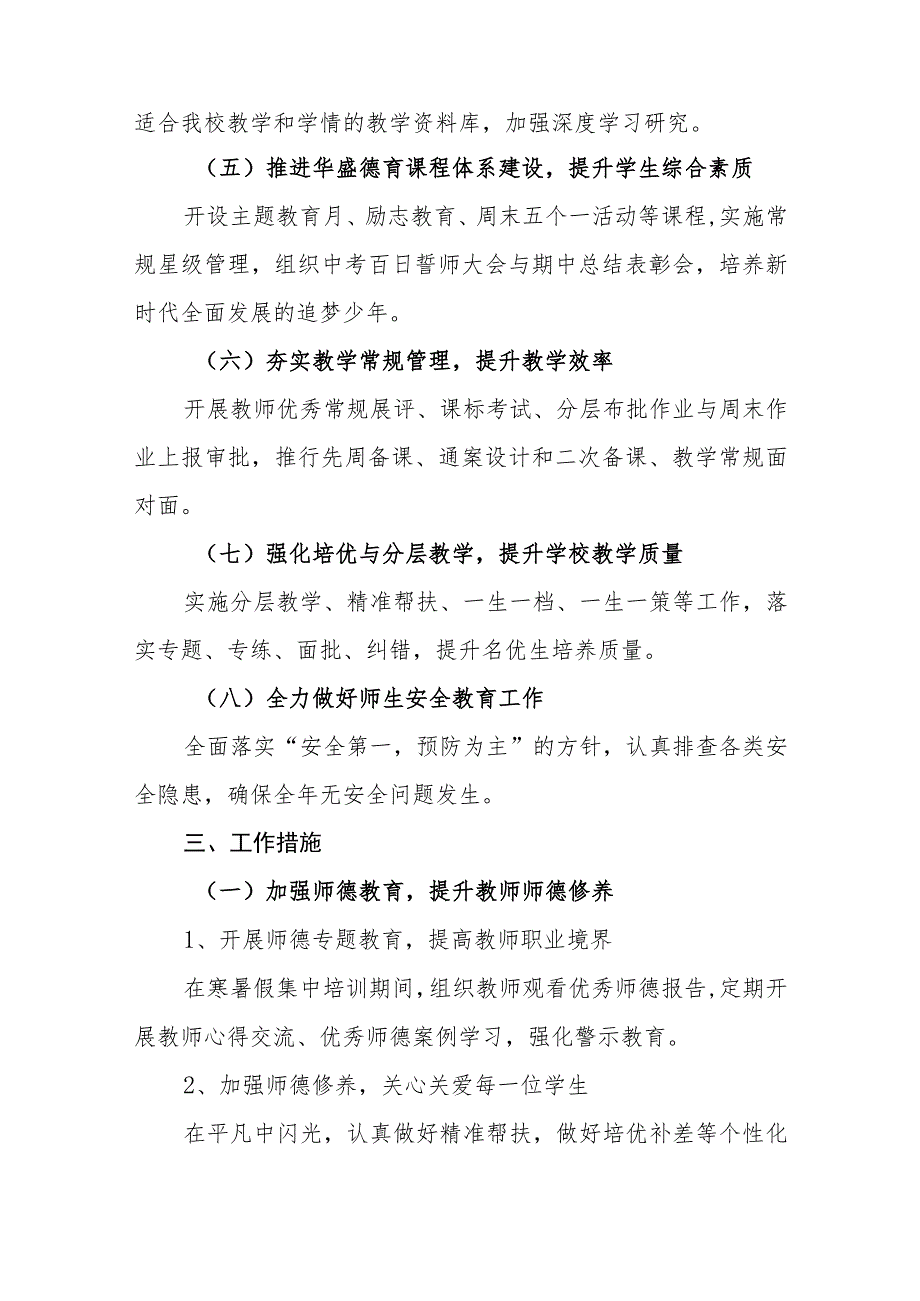 适合我校教学和学情的教学资料库，加强深度学习研究。
（五）推进华盛德育课程体系建设，提升学生综合素质
开设主题教育月、励志教育、周末五个一活动等课程,实施常
规星级管理，组织中考百日誓师大会与期中总结表彰会，培养新
时代全面发展的追梦少年。
（六）夯实教学常规管理，提升教学效率
开展教师优秀常规展评、课标考试、分层布批作业与周末作
业上报审批，推行先周备课、通案设计和二次备课、教学常规面
对面。
（七）强化培优与分层教学，提升学校教学质量
实施分层教学、精准帮扶、一生一档、一生一策等工作，落
实专题、专练、面批、纠错，提升名优生培养质量。
（八）全力做好师生安全教育工作
全面落实“安全第一，预防为主”的方针，认真排查各类安
全隐患，确保全年无安全问题发生。
三、工作措施
（一）加强师德教育，提升教师师德修养
1、开展师德专题教育，提高教师职业境界
在寒暑假集中培训期间,组织教师观看优秀师德报告,定期开
展教师心得交流、优秀师德案例学习，强化警示教育。
2、加强师德修养，关心关爱每一位学生
在平凡中闪光，认真做好精准帮扶，做好培优补差等个性化